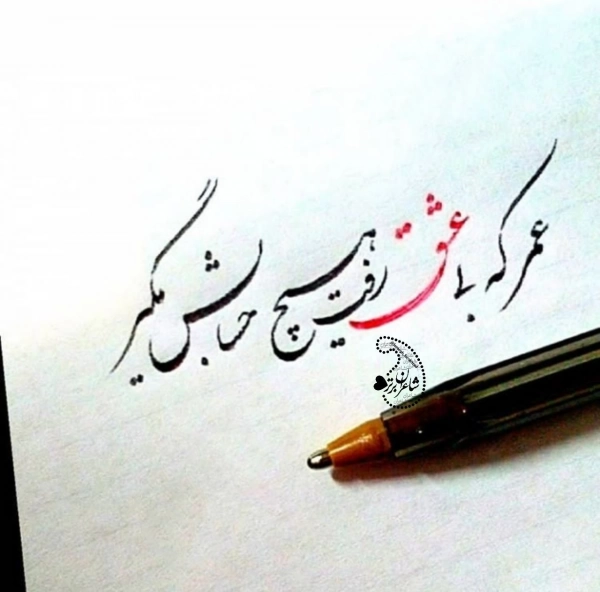 عمر که بی عشق رفت هیچ حسابش مگیر
شاعران برتر